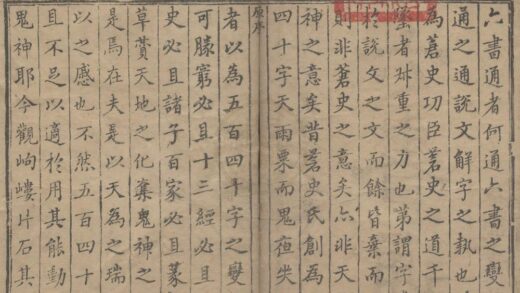 六書通者何通六書之變
通之通說文解字之執也
為蒼史功臣蒼史之道千
者叔重之力也第謂字
於說文之文而餘皆棄而
則非蒼史之意矣亦非天
神之意矣昔蒼史氏創為
四十字天雨粟而鬼夜哭
原序
者以為五百四十字之變
可勝窮必且十三經必且
史必且諸子百家必且篆
草贊天地之化鬼神之
是焉在夫是以天為之瑞
以之感也不然五百四十
且不足以適於用其能動
鬼神耶今觀岣嶁片石其